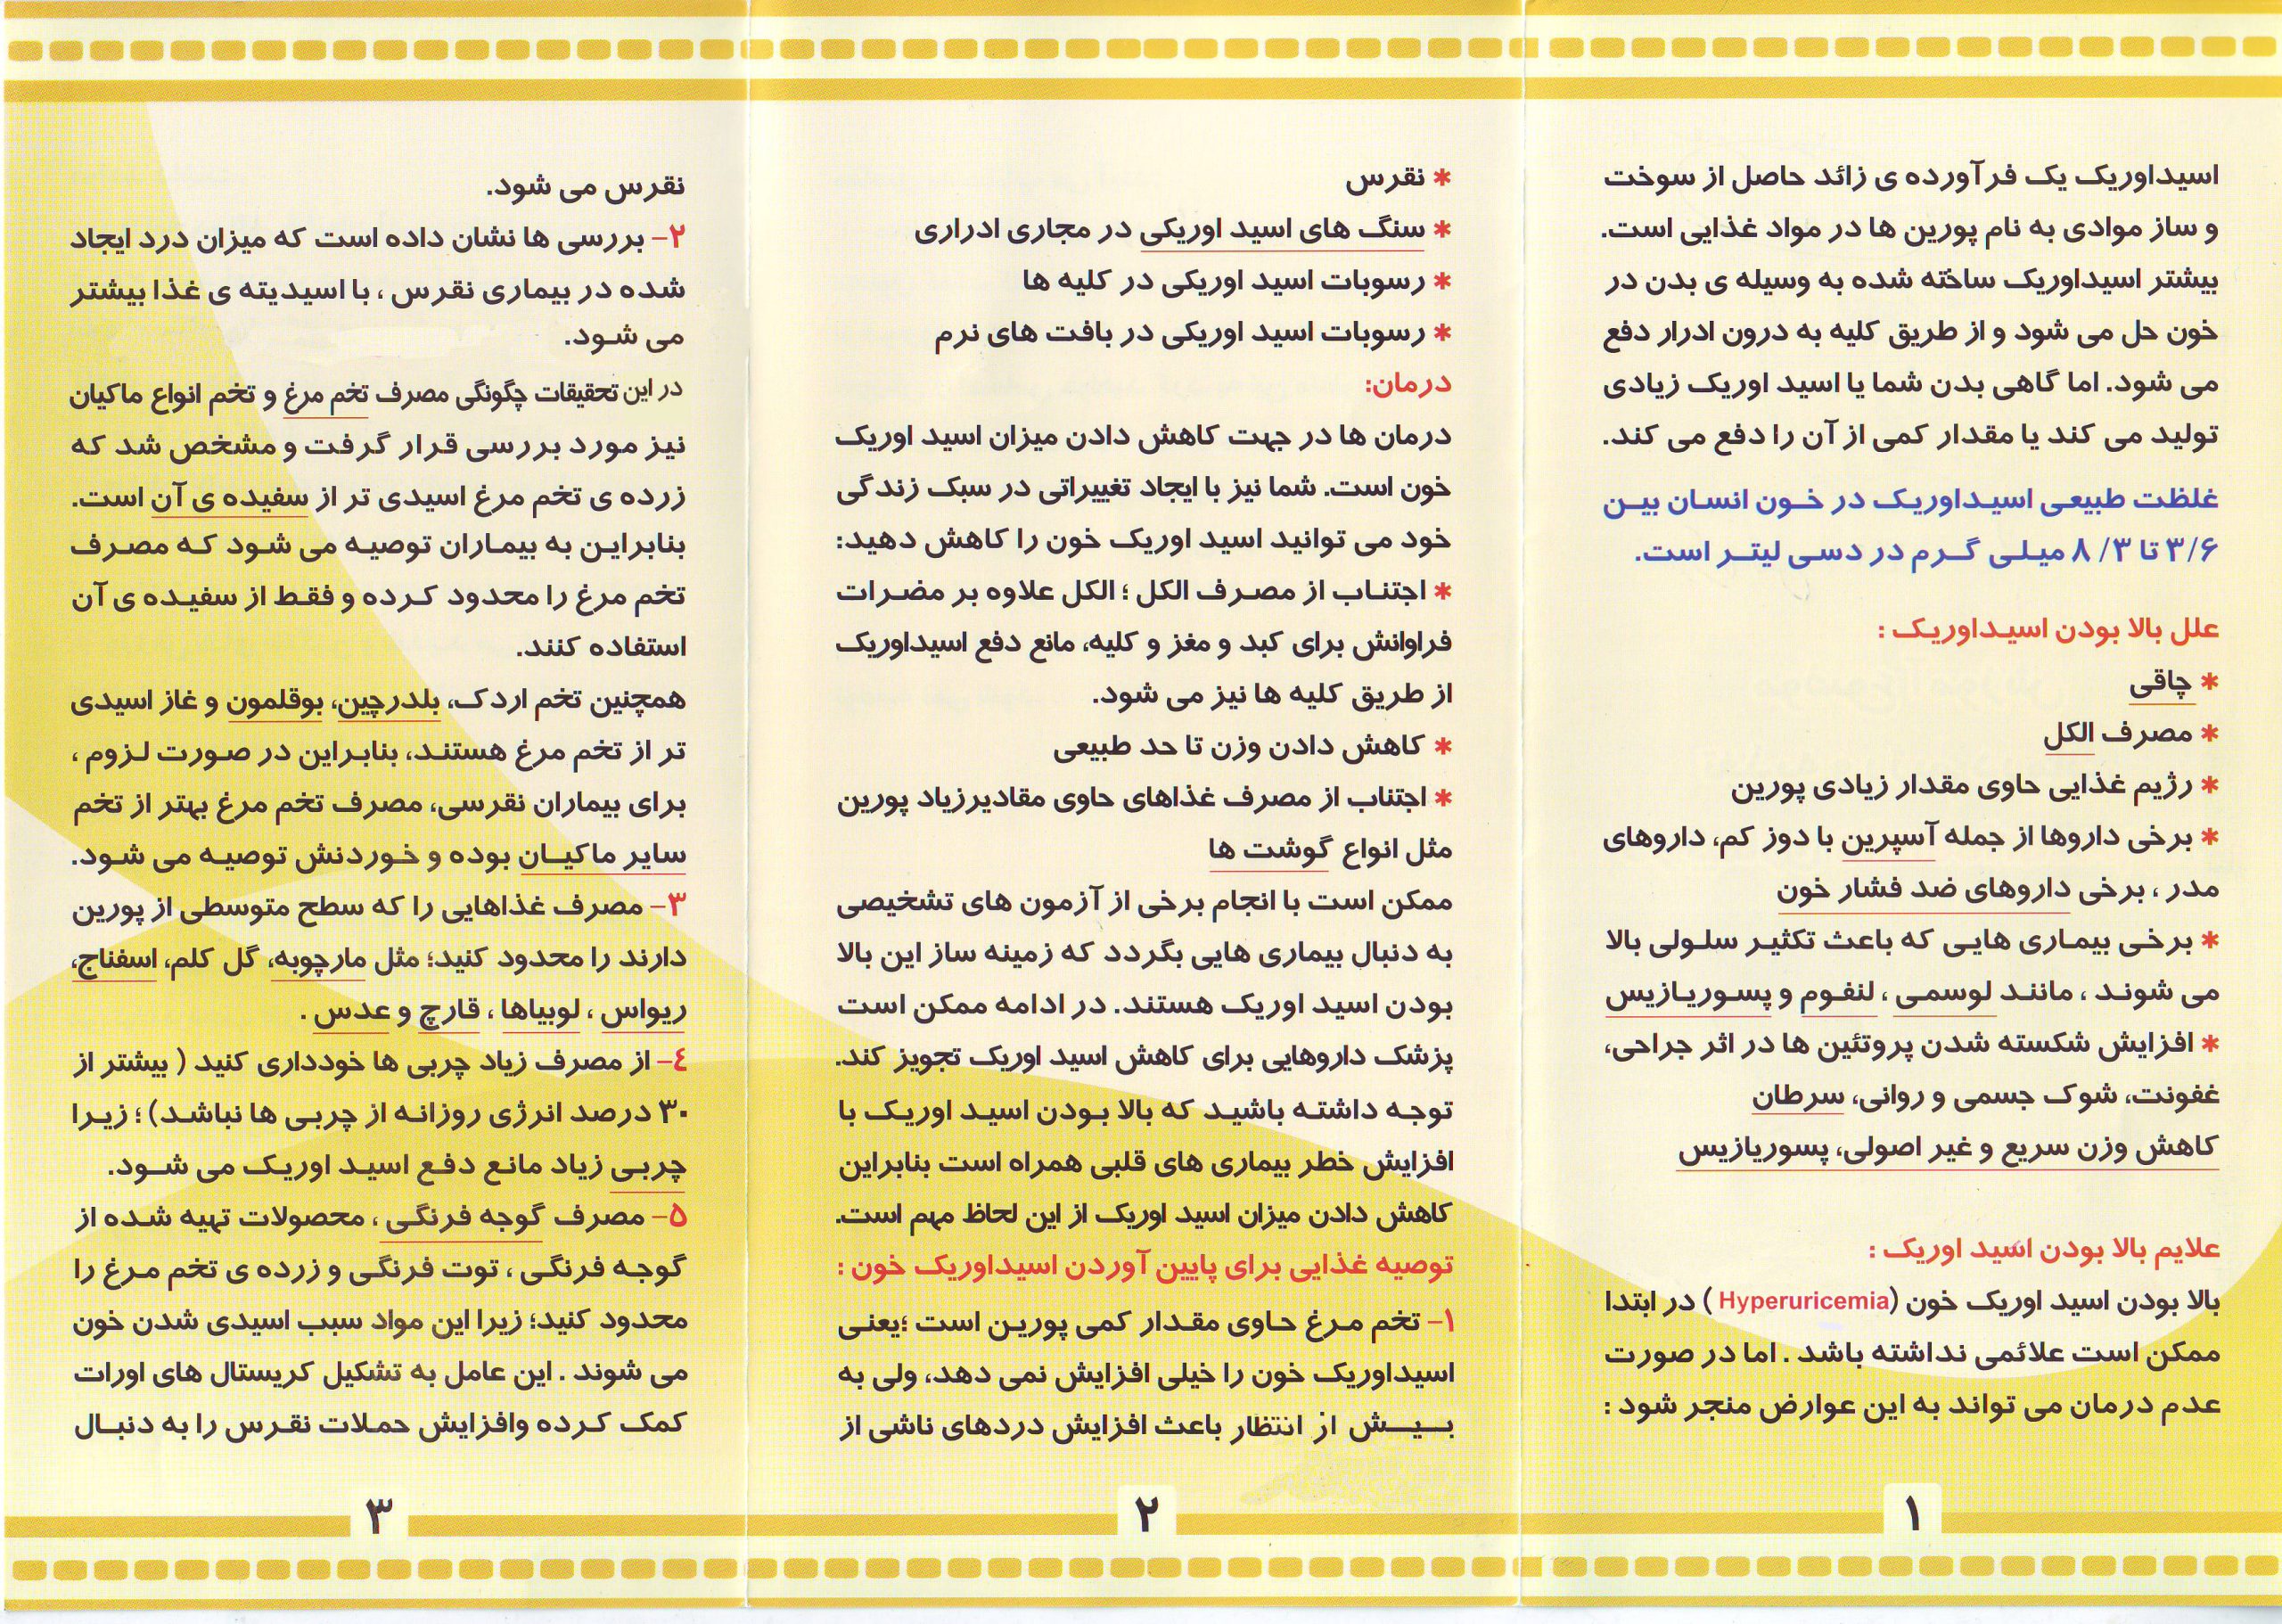 اسیداوریک یک فرآورده ی زائد حاصل از سوخت
و ساز موادی به نام پورین ها در مواد غذایی است.
بیشتر اسیداوریک ساخته شده به وسیله ی بدن در
خون حل می شود و از طریق کلیه به درون ادرار دفع
می شود. اما گاهی بدن شما یا اسید اوریک زیادی
تولید می کند یا مقدار کمی از آن را دفع می کند.
غلظت طبیعی اسیداوریک در خون انسان بین
۳/۶ تا ۸/۳ میلی گرم در دسی لیتر است.
علل بالا بودن اسیداوریک :
* چاقی
* مصرف الکل
* رژیم غذایی حاوی مقدار زیادی پورین
* برخی داروها از جمله آسپرین با دوز کم، داروهای
مدر ، برخی داروهای ضد فشار خون
* برخی بیماری هایی که باعث تکثیر سلولی بالا
می شوند ، مانند لوسمی ، لنفوم و پسوریازیس
* افزایش شکسته شدن پروتئین ها در اثر جراحی،
غفونت، شوک جسمی و روانی، سرطان
کاهش وزن سریع و غیر اصولی، پسوریازیس
علایم بالا بودن اسید اوریک :
بالا بودن اسید اوریک خون (Hyperuricemia ) در ابتدا
ممکن است علائمی نداشته باشد . اما در صورت
عدم درمان می تواند به این عوارض منجر شود :
۱
* نقرس
* سنگ های اسید اوریکی در مجاری ادراری
* رسوبات اسید اوریکی در کلیه ها
* رسوبات اسید اوریکی در بافت های نرم
درمان:
درمان ها در جهت کاهش دادن میزان اسید اوریک
خون است. شما نیز با ایجاد تغییراتی در سبک زندگی
خود می توانید اسید اوریک خون را کاهش دهید:
* اجتناب از مصرف الکل ؛ الکل علاوه بر مضرات
فراوانش برای کبد و مغز و کلیه، مانع دفع اسیداوریک
از طریق کلیه ها نیز می شود.
* کاهش دادن وزن تا حد طبیعی
* اجتناب از مصرف غذاهای حاوی مقادیرزیاد پورین
مثل انواع گوشت ها
ممکن است با انجام برخی از آزمون های تشخیصی
به دنبال بیماری هایی بگردد که زمینه ساز این بالا
بودن اسید اوریک هستند. در ادامه ممکن است
پزشک داروهایی برای کاهش اسید اوریک تجویز کند.
توجه داشته باشید که بالا بودن اسید اوریک با
افزایش خطر بیماری های قلبی همراه است بنابراین
کاهش دادن میزان اسید اوریک از این لحاظ مهم است.
توصیه غذایی برای پایین آوردن اسیداوریک خون :
۱- تخم مرغ حاوی مقدار کمی پورین است ؛یعنی
اسیداوریک خون را خیلی افزایش نمی دهد، ولی به
بیش از انتظار باعث افزایش دردهای ناشی از
۲
نقرس می شود.
۲- بررسی ها نشان داده است که میزان درد ایجاد
شده در بیماری نقرس ، با اسیدیته ی غذا بیشتر
می شود.
در این تحقیقات چگونگی مصرف تخم مرغ و تخم انواع ماکیان
نیز مورد بررسی قرار گرفت و مشخص شد که
زرده ی تخم مرغ اسیدی تر از سفیده ی آن است.
بنابراین به بیماران توصیه می شود که مصرف
تخم مرغ را محدود کرده و فقط از سفیده ی آن
استفاده کنند.
همچنین تخم اردک، بلدرچین، بوقلمون و غاز اسیدی
تر از تخم مرغ هستند، بنابراین در صورت لزوم ،
برای بیماران نقرسی، مصرف تخم مرغ بهتر از تخم
سایر ماکیان بوده و خوردنش توصیه می شود.
۳- مصرف غذاهایی را که سطح متوسطی از پورین
دارند را محدود کنید؛ مثل مارچوبه، گل کلم، اسفناج،
ریواس ، لوبیاها ، قارچ و عدس .
٤- از مصرف زیاد چربی ها خودداری کنید ( بیشتر از
۳۰ درصد انرژی روزانه از چربی ها نباشد) ؛ زیرا
چربی زیاد مانع دفع اسید اوریک می شود.
۵- مصرف گوجه فرنگی ، محصولات تهیه شده از
گوجه فرنگی ، توت فرنگی و زرده ی تخم مرغ را
محدود کنید؛ زیرا این مواد سبب اسیدی شدن خون
می شوند . این عامل به تشکیل کریستال های اورات
کمک کرده وافزایش حملات نقرس را به دنبال
۳